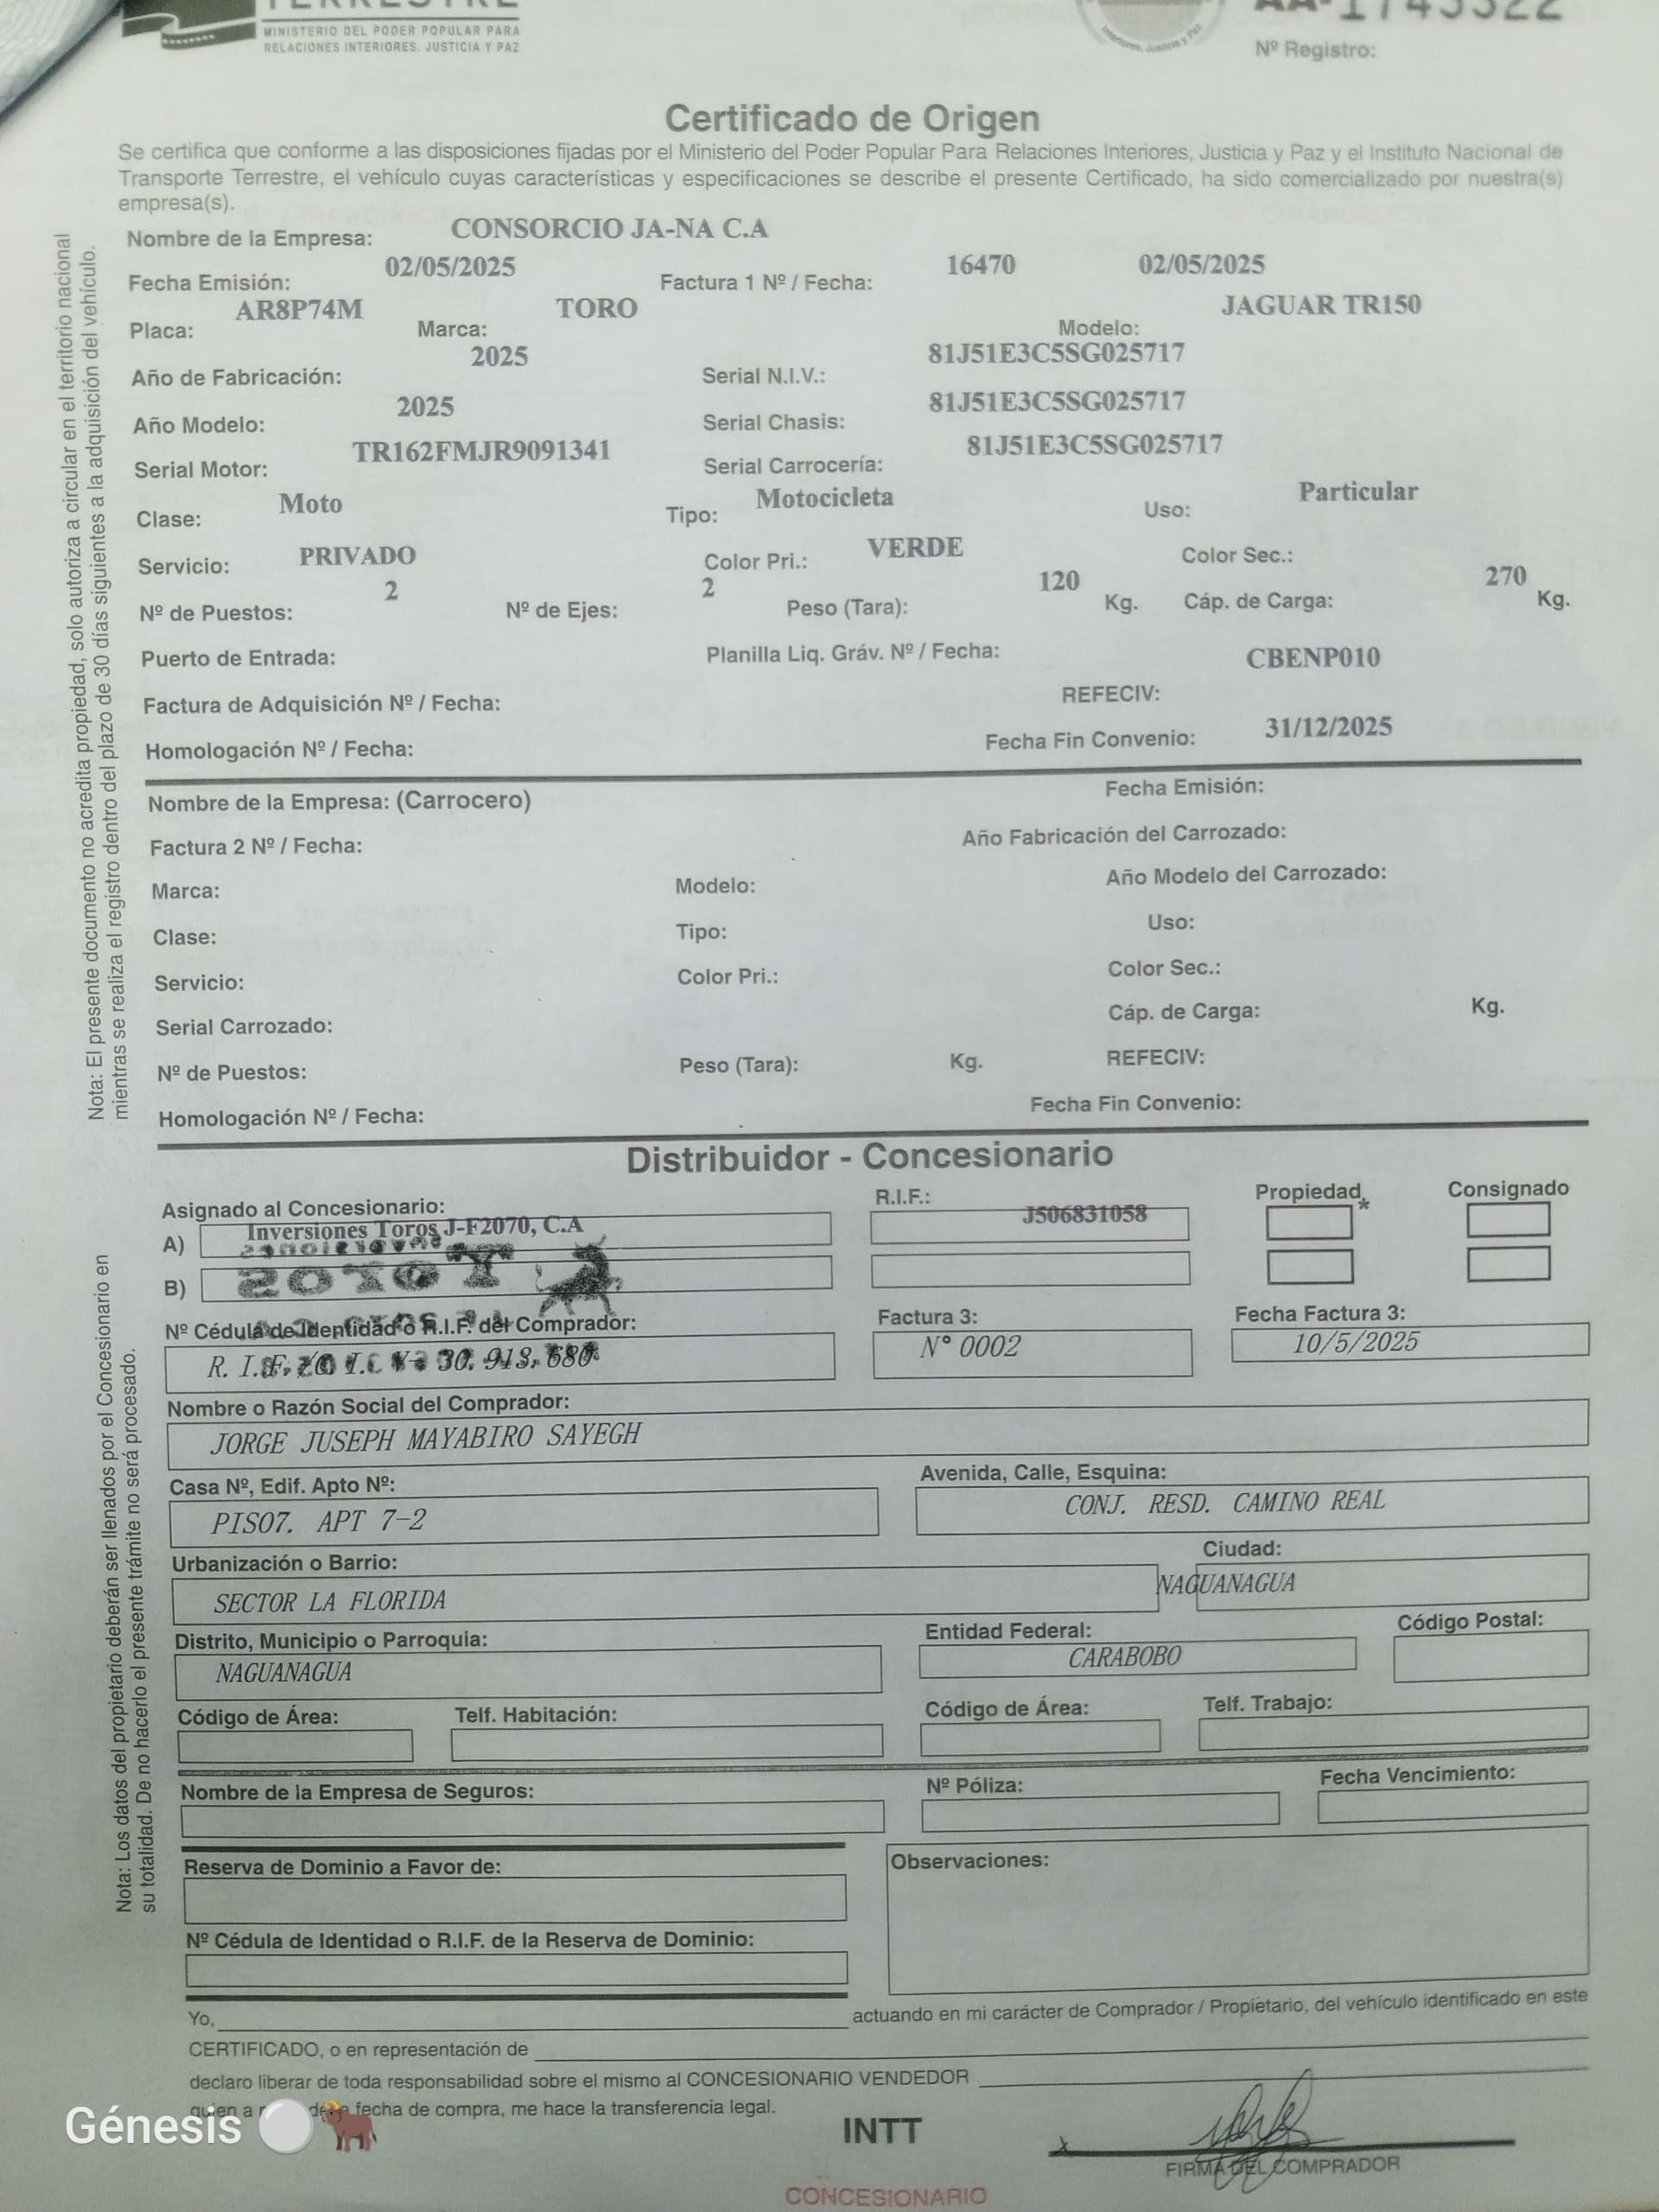 MINISTERIO DEL PODER POPULAR PARA
RELACIONES INTERIORES, JUSTICIA Y PAZ
Interiores, Justicia y Paz
Nº Registro:
Certificado de Origen
Se certifica que conforme a las disposiciones fijadas por el Ministerio del Poder Popular Para Relaciones Interiores, Justicia y Paz y el Instituto Nacional de
Transporte Terrestre, el vehículo cuyas características y especificaciones se describe el presente Certificado, ha sido comercializado por nuestra(s)
empresa(s).
Nombre de la Empresa: CONSORCIO JA-NA C.A
Fecha Emisión: 02/05/2025 Factura 1 Nº / Fecha: 16470 02/05/2025
Placa: AR8P74M Marca: TORO Modelo: JAGUAR TR150
Año de Fabricación: 2025 Serial N.I.V.: 81J51E3C5SG025717
Año Modelo: 2025 Serial Chasis: 81J51E3C5SG025717
Serial Motor: TR162FMJR9091341 Serial Carrocería: 81J51E3C5SG025717
Clase: Moto Tipo: Motocicleta Uso: Particular
Servicio: PRIVADO Color Pri.: VERDE Color Sec.:
Nº de Puestos: 2 Nº de Ejes: 2 Peso (Tara): 120 Kg. Cáp. de Carga: 270 Kg.
Puerto de Entrada: Planilla Liq. Gráv. Nº / Fecha:
Factura de Adquisición Nº / Fecha: REFECIV: CBENP010
Homologación Nº / Fecha: Fecha Fin Convenio: 31/12/2025
Nombre de la Empresa: (Carrocero) Fecha Emisión:
Factura 2 Nº / Fecha: Año Fabricación del Carrozado:
Marca: Modelo: Año Modelo del Carrozado:
Clase: Tipo: Uso:
Servicio: Color Pri.: Color Sec.:
Serial Carrozado: Cáp. de Carga: Kg.
Nº de Puestos: Peso (Tara): Kg. REFECIV:
Homologación Nº / Fecha: Fecha Fin Convenio:
Nota: El presente documento no acredita propiedad, solo autoriza a circular en el territorio nacional
mientras se realiza el registro dentro del plazo de 30 días siguientes a la adquisición del vehículo.
Distribuidor - Concesionario
Asignado al Concesionario: R.I.F.: Propiedad Consignado
A) Inversiones Toros J-F2070, C.A J506831058 *
B)
Nº Cédula de Identidad o R.I.F. del Comprador: Factura 3: Fecha Factura 3:
R. I.F. 30. 913. 680 N° 0002 10/5/2025
Nombre o Razón Social del Comprador:
JORGE JUSEPH MAYABIRO SAYEGH
Casa Nº, Edif. Apto Nº: Avenida, Calle, Esquina:
PISO7. APT 7-2 CONJ. RESD. CAMINO REAL
Urbanización o Barrio: Ciudad:
SECTOR LA FLORIDA NAGUANAGUA
Distrito, Municipio o Parroquia: Entidad Federal: Código Postal:
NAGUANAGUA CARABOBO
Código de Área: Telf. Habitación: Código de Área: Telf. Trabajo:
Nombre de la Empresa de Seguros: Nº Póliza: Fecha Vencimiento:
Reserva de Dominio a Favor de: Observaciones:
Nº Cédula de Identidad o R.I.F. de la Reserva de Dominio:
Nota: Los datos del propietario deberán ser llenados por el Concesionario en
su totalidad. De no hacerlo el presente trámite no será procesado.
Yo, actuando en mi carácter de Comprador / Propietario, del vehículo identificado en este
CERTIFICADO, o en representación de
declaro liberar de toda responsabilidad sobre el mismo al CONCESIONARIO VENDEDOR
quien a fecha de compra, me hace la transferencia legal.
Génesis
INTT
x
FIRMA DEL COMPRADOR
CONCESIONARIO